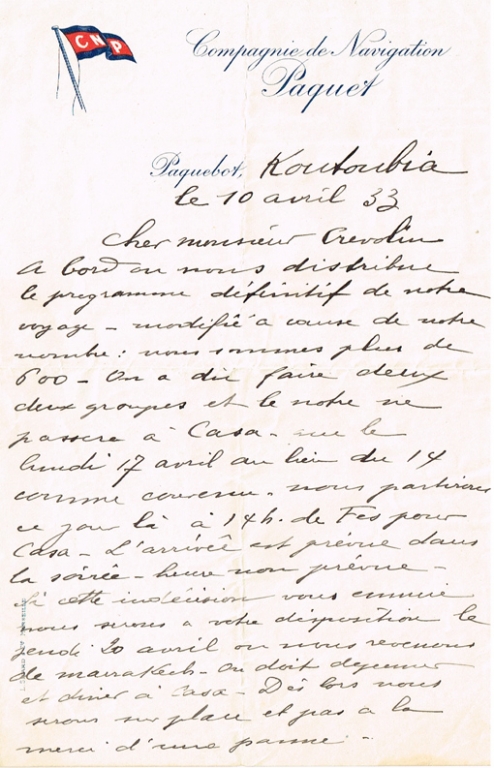 CNP
Compagnie de Navigation
Paquet
Paquebot, Koutoubia
le 10 avril 33
Cher monsieur Crevolin
A bord on nous distribue
le programme définitif de notre
voyage - modifié à cause de notre
nombre : nous sommes plus de
600 - On a dû faire deux
deux groupes et le notre ne
passera à Casa - que le
lundi 17 avril au lieu du 14
comme convenu. nous partirons
ce jour là à 14h. de Fes pour
Casa - L'arrivée est prévue dans
la soirée - heure non prévue -
Si cette indécision vous ennuie
nous serons à votre disposition le
jeudi 20 avril où nous revenons
de marrakech - On doit dejeuner
et diner à Casa - Dès lors nous
serons sur place et pas a la
merci d'une panne -